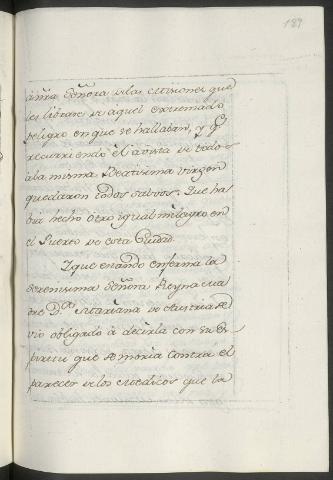 189
á nr̃a Señora de las Misiones que
les librase de aquel extremado
peligro en que se hallaban, y q.e
recurriendo él á vista de todos
á la misma Beatisima Virgen
quedaron todos salvos. Que ha-
bia hecho otro igual milagro en
el Puerto de esta Ciudad.
Y que estando enferma la
Serenisima Señora Reyna Ma-
dre D.a Mariana de Austria se
vio obligado á decirla con su Es-
piritu que se moria contra el
parecer de los Medicos que la